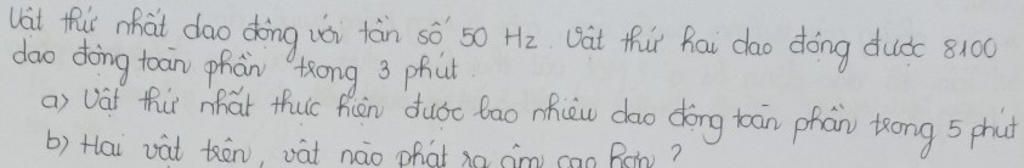 Vật thứ nhất dao động với tần số 50 Hz. Vật thứ hai dao động được 8100
dao động toàn phần trong 3 phút.
a) Vật thứ nhất thực hiện được bao nhiêu dao động toàn phần trong 5 phút
b) Hai vật trên, vật nào phát ra âm cao hơn ?